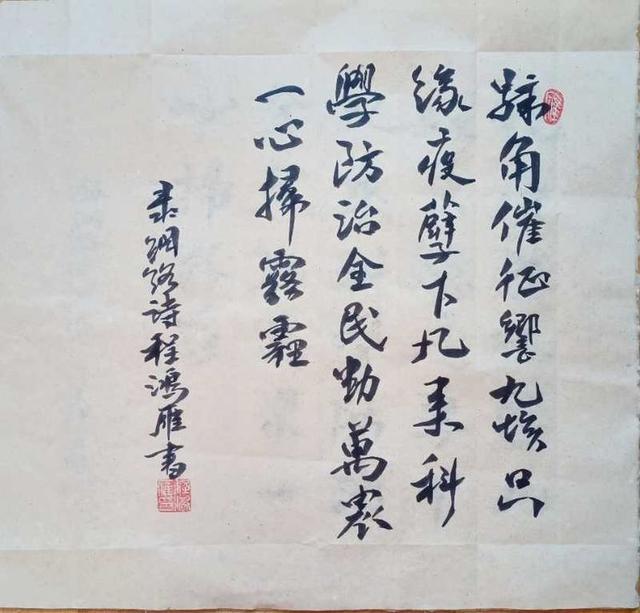 號角催征響九垓只
緣疫孽下凡來科
學防治全民動萬眾
一心掃霧霾
录網絡詩程鴻雁書